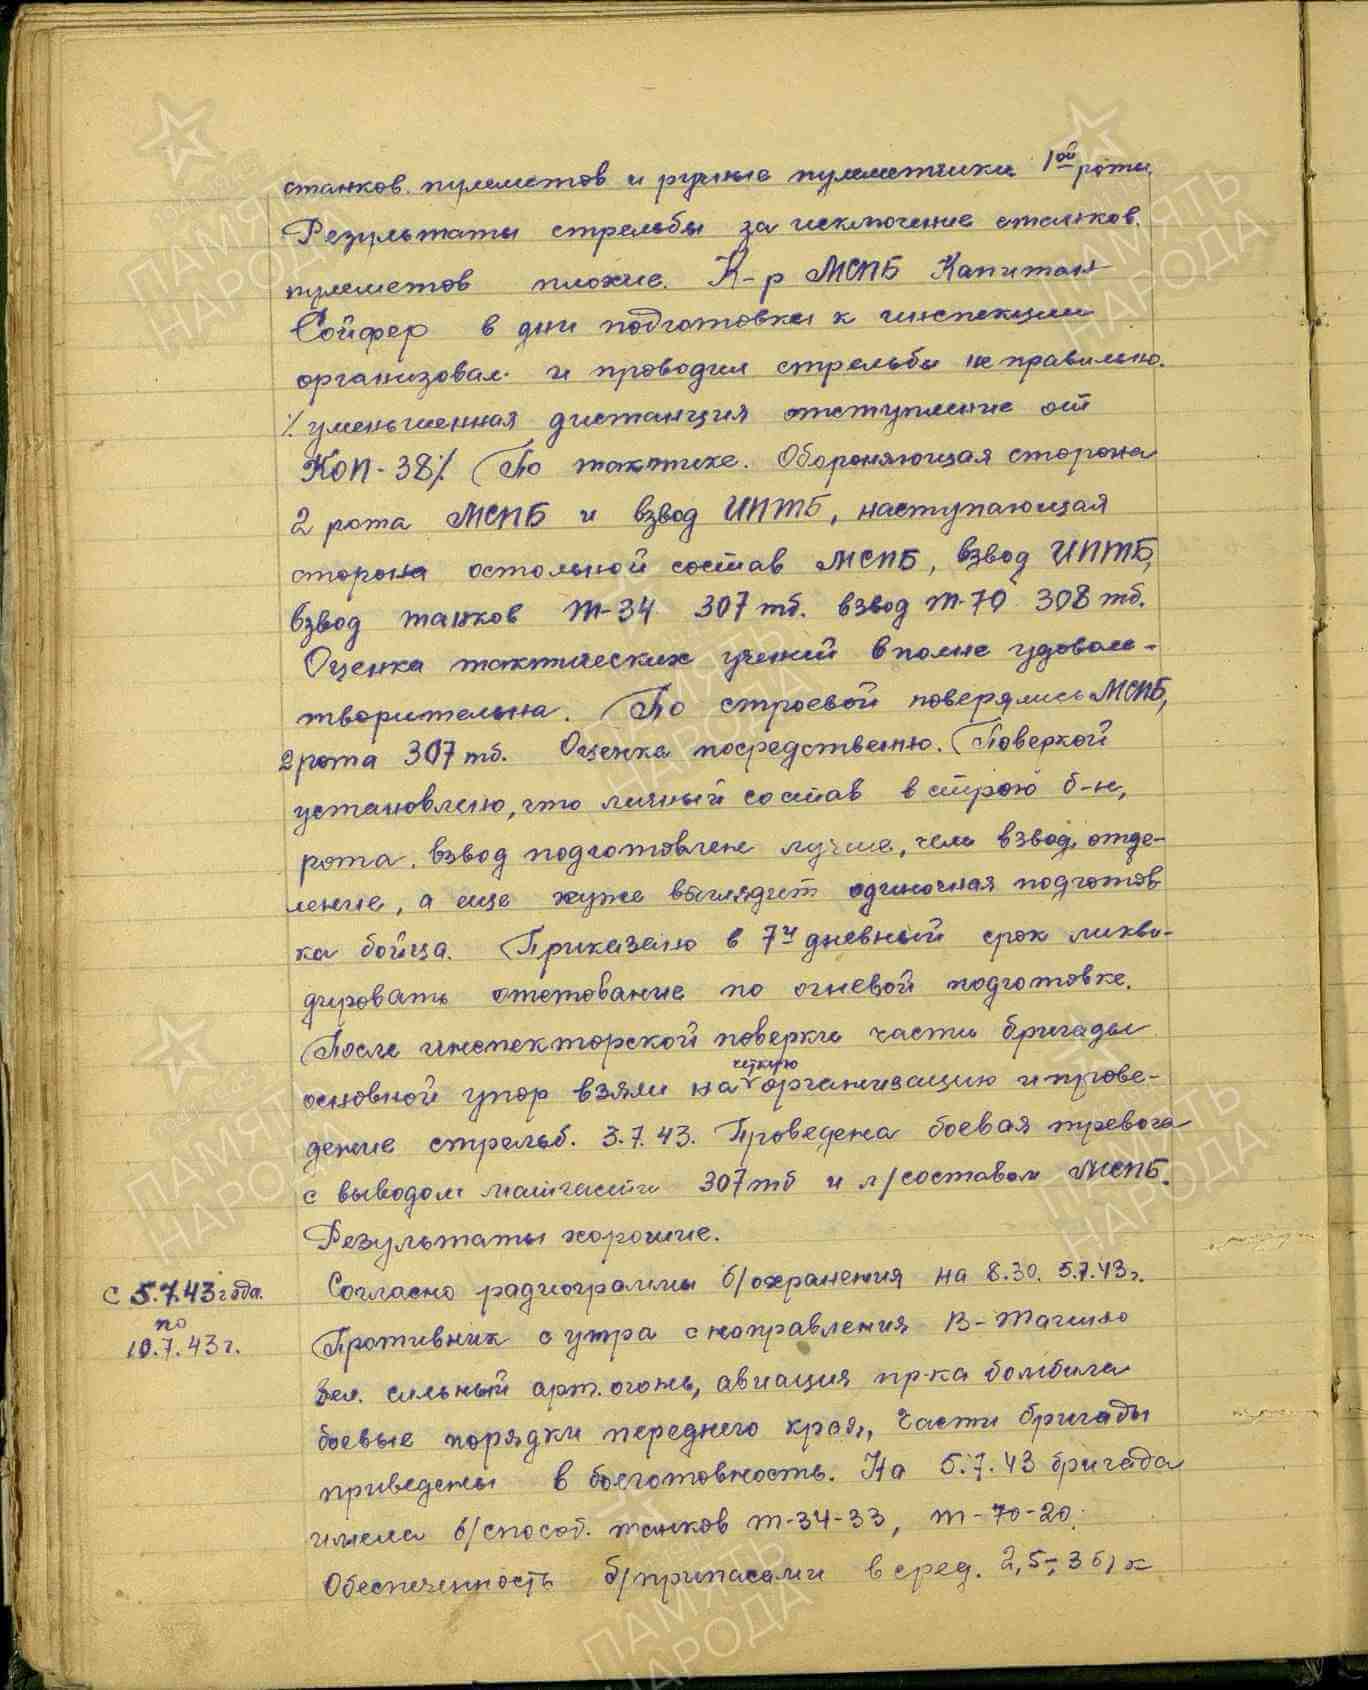 станков. пулеметов и ручные пулеметчики 1ой роты.
Результаты стрельбы за исключение станков.
пулеметов плохие. К-р МСПБ Капитан
Сойфер в дни подготовки к инспекции
организовал и проводил стрельбы не правильно.
% уменьшенная дистанция отступление от
КОП-38% По тактике. Обороняющая сторона
2 рота МСПБ и взвод ИПТБ, наступающая
сторона остольной состав МСПБ, взвод ИПТБ,
взвод танков Т-34 307 тб. взвод Т-70 308 тб.
Оценка тактических учений вполне удовле-
творительна. По строевой поверялись МСПБ,
2 рота 307 тб. Оценка посредственно. Поверкой
установлено, что личный состав в строю б-н,
рота, взвод подготовлен лучше, чем взвод, отде-
ление, а еще хуже выглядит одиночная подготов
ка бойца. Приказано в 7и дневный срок ликви-
дировать отставание по огневой подготовке.
После инспекторской поверки части бригады
четкую
основной упор взяли на организацию и прове-
дение стрельб. 3.7.43. Проведена боевая тревога
с выводом матчасти 307 тб и л/составом МСПБ.
Результаты хорошие.
с 5.7.43 года. Согласно радиограммы б/охранения на 8.30. 5.7.43 г.
по
10.7.43 г. Противник с утра с направления В-Тагино
вел сильный арт. огонь, авиация пр-ка бомбила
боевые порядки переднего края, Части бригады
приведены в боеготовность. На 5.7.43 бригада
имела б/способ. танков Т-34-33, Т-70-20.
Обеспеченность б/припасами в сред. 2,5-3 б/к